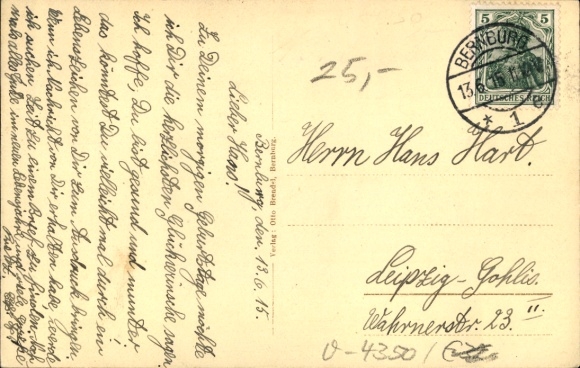 Bernburg, den 13.6.15.
Lieber Hans!
Zu Deinem morgigen Geburtstage möchte
ich Dir die herzlichsten Glückwünsche sagen.
Ich hoffe, Du bist gesund und munter
das könntest Du vielleicht mal durch ein
Lebenszeichen von Dir zum Ausdruck bringen.
Wenn ich Nachricht von Dir erhalten habe, werde
ich suchen Zeit zu einem Brief zu finden. Noch-
mals alles Gute im neuen Lebensjahre und viele Grüße
Verlag: Otto Brendel, Bernburg.
25,-
5 5
DEUTSCHES REICH
BERNBURG
13.6.15
* 1
Herrn Hans Hart.
Leipzig-Gohlis.
Wahrnerstr. 23. II.
v-4350/